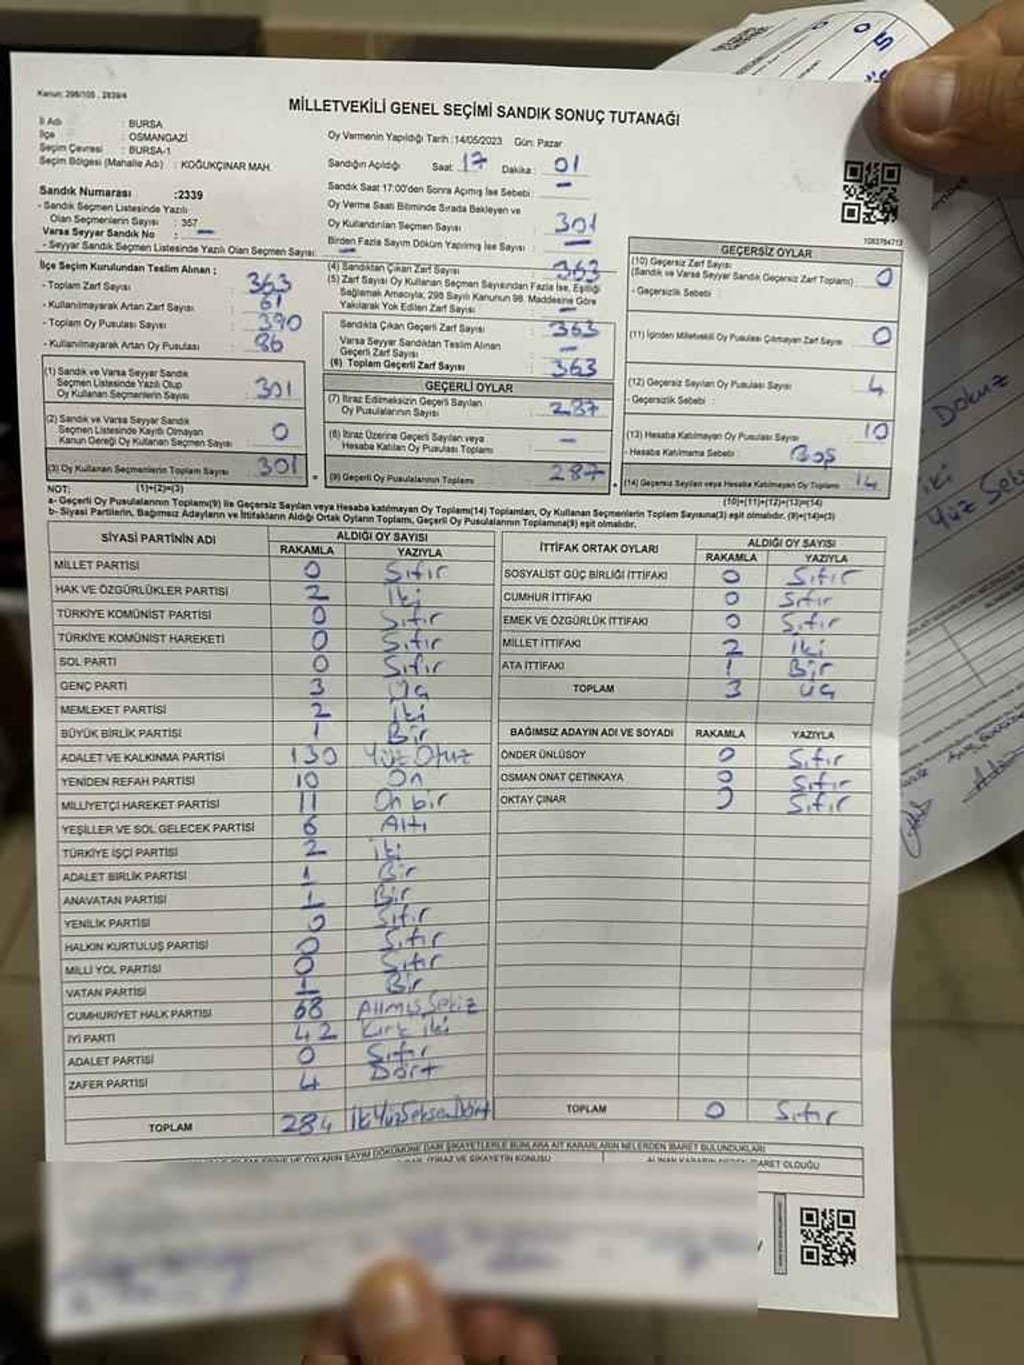 Kanun: 298/105 , 2839/4
MİLLETVEKİLİ GENEL SEÇİMİ SANDIK SONUÇ TUTANAĞI
İl Adı : BURSA
İlçe : OSMANGAZİ
Seçim Çevresi : BURSA-1
Seçim Bölgesi (Mahalle Adı) : KOĞUKÇINAR MAH.
Oy Vermenin Yapıldığı Tarih :14/05/2023 Gün: Pazar
Sandığın Açıldığı Saat: 17 Dakika: 01
Sandık Saat 17:00'den Sonra Açmış İse Sebebi: –
Oy Verme Saati Bitiminde Sırada Bekleyen ve
Oy Kullandırılan Seçmen Sayısı : 301
Birden Fazla Sayım Döküm Yapılmış İse Sayısı : –
Sandık Numarası :2339
- Sandık Seçmen Listesinde Yazılı
Olan Seçmenlerin Sayısı : 357
Varsa Seyyar Sandık No : –
- Seyyar Sandık Seçmen Listesinde Yazılı Olan Seçmen Sayısı: –
İlçe Seçim Kurulundan Teslim Alınan ;
- Toplam Zarf Sayısı : 363
- Kullanılmayarak Artan Zarf Sayısı : 61
- Toplam Oy Pusulası Sayısı : 390
- Kullanılmayarak Artan Oy Pusulası : 86
(1) Sandık ve Varsa Seyyar Sandık
Seçmen Listesinde Yazılı Olup
Oy Kullanan Seçmenlerin Sayısı : 301
(2) Sandık ve Varsa Seyyar Sandık
Seçmen Listesinde Kayıtlı Olmayan
Kanun Gereği Oy Kullanan Seçmen Sayısı : 0
(3) Oy Kullanan Seçmenlerin Toplam Sayısı : 301
(4) Sandıktan Çıkan Zarf Sayısı : 363
(5) Zarf Sayısı Oy Kullanan Seçmen Sayısından Fazla İse, Eşitliği
Sağlamak Amacıyla, 298 Sayılı Kanunun 98. Maddesine Göre
Yakılarak Yok Edilen Zarf Sayısı : –
Sandıkta Çıkan Geçerli Zarf Sayısı : 363
Varsa Seyyar Sandıktan Teslim Alınan
Geçerli Zarf Sayısı : –
(6) Toplam Geçerli Zarf Sayısı : 363
GEÇERLİ OYLAR
(7) İtiraz Edilmeksizin Geçerli Sayılan
Oy Pusulalarının Sayısı : 287
(8) İtiraz Üzerine Geçerli Sayılan veya
Hesaba Katılan Oy Pusulaları Toplamı : –
(9) Geçerli Oy Pusulalarının Toplamı : 287
1083764713
GEÇERSİZ OYLAR
(10) Geçersiz Zarf Sayısı
(Sandık ve Varsa Seyyar Sandık Geçersiz Zarf Toplamı) : 0
- Geçersizlik Sebebi :
(11) İçinden Milletvekili Oy Pusulası Çıkmayan Zarf Sayısı 0
(12) Geçersiz Sayılan Oy Pusulası Sayısı : 4
- Geçersizlik Sebebi :
(13) Hesaba Katılmayan Oy Pusulası Sayısı : 10
- Hesaba Katılmama Sebebi : Boş
(14) Geçersiz Sayılan veya Hesaba Katılmayan Oy Toplamı : 14
NOT: (1)+(2)=(3) (10)+(11)+(12)+(13)=(14)
a- Geçerli Oy Pusulaları Toplamı(9) ile Geçersiz Sayılan veya Hesaba katılmayan Oy Toplamı(14) Toplamları, Oy Kullanan Seçmenlerin Toplam Sayısına(3) eşit olmalıdır. (9)+(14)=(3)
b- Siyasi Partilerin, Bağımsız Adayların ve İttifakların Aldığı Ortak Oyların Toplamı, Geçerli Oy Pusulalarının Toplamına(9) eşit olmalıdır.
SİYASİ PARTİNİN ADI ALDIĞI OY SAYISI
RAKAMLA YAZIYLA
MİLLET PARTİSİ 0 Sıfır
HAK VE ÖZGÜRLÜKLER PARTİSİ 2 İki
TÜRKİYE KOMÜNİST PARTİSİ 0 Sıfır
TÜRKİYE KOMÜNİST HAREKETİ 0 Sıfır
SOL PARTİ 0 Sıfır
GENÇ PARTİ 3 Üç
MEMLEKET PARTİSİ 2 İki
BÜYÜK BİRLİK PARTİSİ 1 Bir
ADALET VE KALKINMA PARTİSİ 130 Yüz Otuz
YENİDEN REFAH PARTİSİ 10 On
MİLLİYETÇİ HAREKET PARTİSİ 11 On bir
YEŞİLLER VE SOL GELECEK PARTİSİ 6 Altı
TÜRKİYE İŞÇİ PARTİSİ 2 İki
ADALET BİRLİK PARTİSİ 1 Bir
ANAVATAN PARTİSİ 1 Bir
YENİLİK PARTİSİ 0 Sıfır
HALKIN KURTULUŞ PARTİSİ 0 Sıfır
MİLLİ YOL PARTİSİ 0 Sıfır
VATAN PARTİSİ 1 Bir
CUMHURİYET HALK PARTİSİ 68 Altmış Sekiz
İYİ PARTİ 42 Kırk iki
ADALET PARTİSİ 0 Sıfır
ZAFER PARTİSİ 4 Dört
TOPLAM 284 İki Yüz Seksen Dört
İTTİFAK ORTAK OYLARI ALDIĞI OY SAYISI
RAKAMLA YAZIYLA
SOSYALİST GÜÇ BİRLİĞİ İTTİFAKI 0 Sıfır
CUMHUR İTTİFAKI 0 Sıfır
EMEK VE ÖZGÜRLÜK İTTİFAKI 0 Sıfır
MİLLET İTTİFAKI 2 İki
ATA İTTİFAKI 1 Bir
TOPLAM 3 Üç
BAĞIMSIZ ADAYIN ADI VE SOYADI RAKAMLA YAZIYLA
ÖNDER ÜNLÜSOY 0 Sıfır
OSMAN ONAT ÇETİNKAYA 0 Sıfır
OKTAY ÇINAR 0 Sıfır
TOPLAM 0 Sıfır
OYLARIN SAYIM DÖKÜMÜNE DAİR ŞİKAYETLERLE BUNLARA AİT KARARLARIN NELERDEN İBARET BULUNDUKLARI
İTİRAZ VE ŞİKAYETİN KONUSU
Dokuz
iki
Yüz